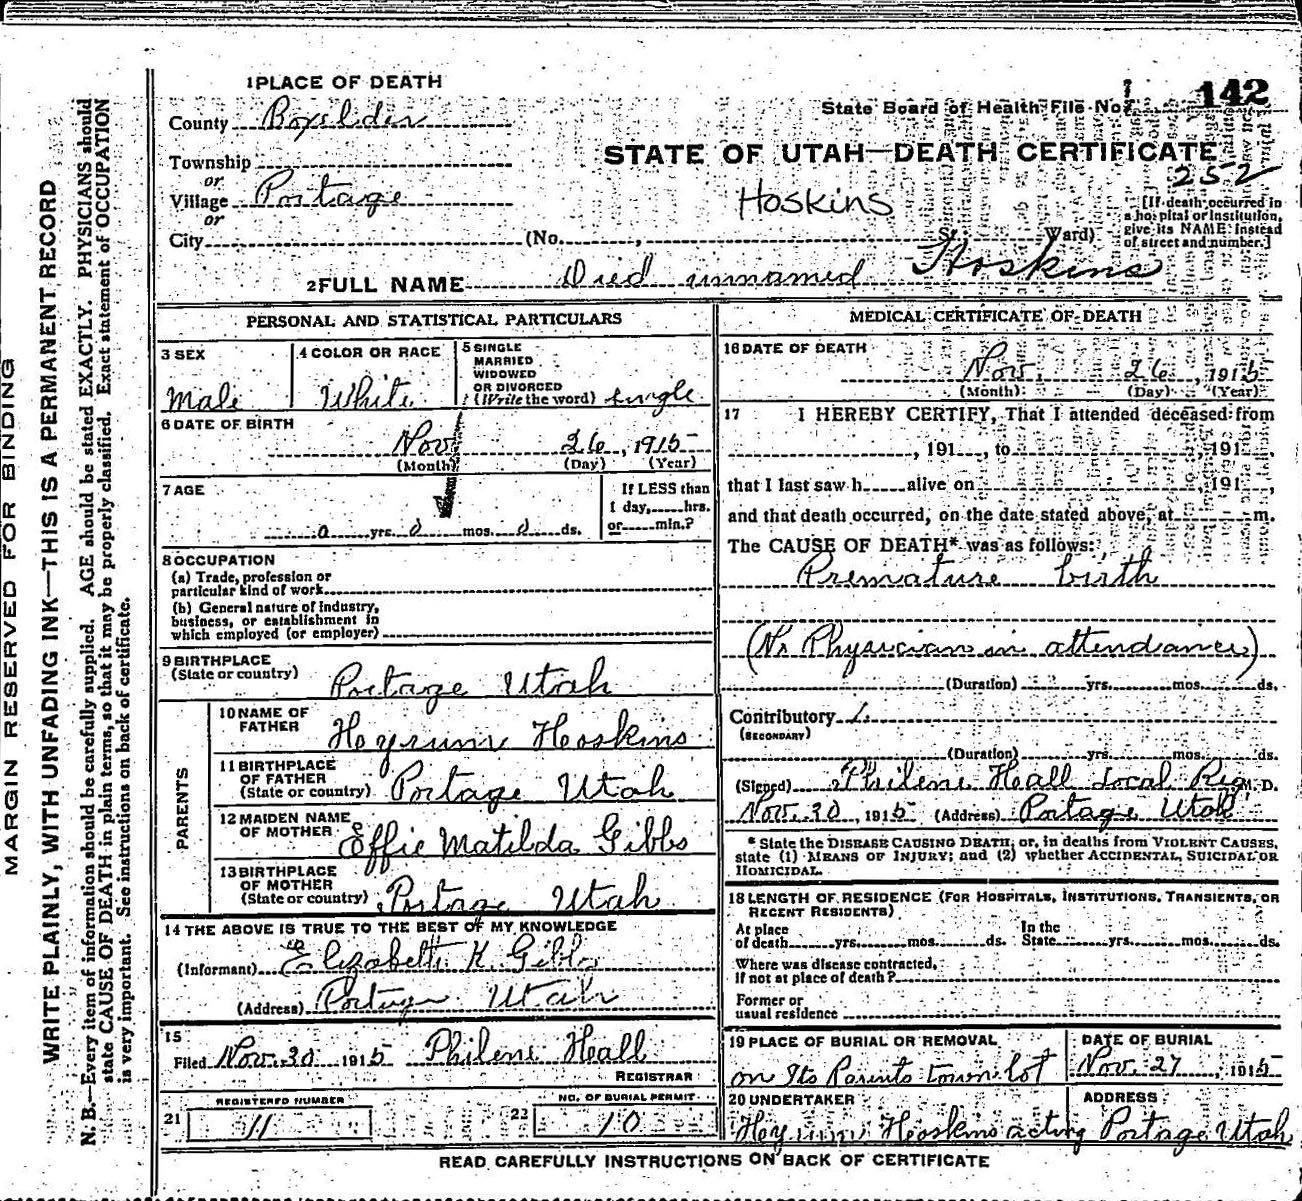 MARGIN RESERVED FOR BINDING
WRITE PLAINLY, WITH UNFADING INK—THIS IS A PERMANENT RECORD
N. B.—Every item of information should be carefully supplied. AGE should be stated EXACTLY. PHYSICIANS should
state CAUSE OF DEATH in plain terms, so that it may be properly classified. Exact statement of OCCUPATION
is very important. See instructions on back of certificate.
1 PLACE OF DEATH
County Boxelder
Township
or
Village Portage
or
City (No. , St. Ward)
State Board of Health File No. 142
STATE OF UTAH—DEATH CERTIFICATE
252
Hoskins
[If death occurred in
a hospital or institution,
give its NAME instead
of street and number.]
2 FULL NAME Died unnamed Hoskins
PERSONAL AND STATISTICAL PARTICULARS
3 SEX
Male
4 COLOR OR RACE
White
5 SINGLE
MARRIED
WIDOWED
OR DIVORCED
(Write the word) single
6 DATE OF BIRTH
Nov 26, 1915
(Month) (Day) (Year)
7 AGE
0 yrs. 0 mos. 0 ds.
If LESS than
1 day, hrs.
or min.?
8 OCCUPATION
(a) Trade, profession or
particular kind of work
(b) General nature of Industry,
business, or establishment in
which employed (or employer)
9 BIRTHPLACE
(State or country) Portage Utah
PARENTS
10 NAME OF
FATHER Heyrum Hoskins
11 BIRTHPLACE
OF FATHER
(State or country) Portage Utah
12 MAIDEN NAME
OF MOTHER Effie Matilda Gibbs
13 BIRTHPLACE
OF MOTHER
(State or country) Portage Utah
14 THE ABOVE IS TRUE TO THE BEST OF MY KNOWLEDGE
(Informant) Elizabeth K. Gibbs
(Address) Portage Utah
15
Filed Nov. 30 1915 Philene Hall
REGISTRAR
21 REGISTERED NUMBER
11
22 NO. OF BURIAL PERMIT
10
MEDICAL CERTIFICATE OF DEATH
16 DATE OF DEATH
Nov. 26, 1915
(Month) (Day) (Year)
17 I HEREBY CERTIFY, That I attended deceased from
, 191 , to , 191 ,
that I last saw h alive on , 191 ,
and that death occurred, on the date stated above, at m.
The CAUSE OF DEATH* was as follows:
Premature birth
(No Physician in attendance)
(Duration) yrs. mos. ds.
Contributory
(SECONDARY)
(Duration) yrs. mos. ds.
(Signed) Philene Hall Local Reg M. D.
Nov. 30, 1915 (Address) Portage Utah
* State the DISEASE CAUSING DEATH; or, in deaths from VIOLENT CAUSES,
state (1) MEANS OF INJURY; and (2) whether ACCIDENTAL, SUICIDAL OR
HOMICIDAL.
18 LENGTH OF RESIDENCE (FOR HOSPITALS, INSTITUTIONS, TRANSIENTS, OR
RECENT RESIDENTS)
At place
of death yrs. mos. ds.
In the
State yrs. mos. ds.
Where was disease contracted,
if not at place of death?
Former or
usual residence
19 PLACE OF BURIAL OR REMOVAL
on Its Parents town lot
DATE OF BURIAL
Nov. 27, 1915
20 UNDERTAKER
Heyrum Hoskins acting
ADDRESS
Portage Utah
READ CAREFULLY INSTRUCTIONS ON BACK OF CERTIFICATE